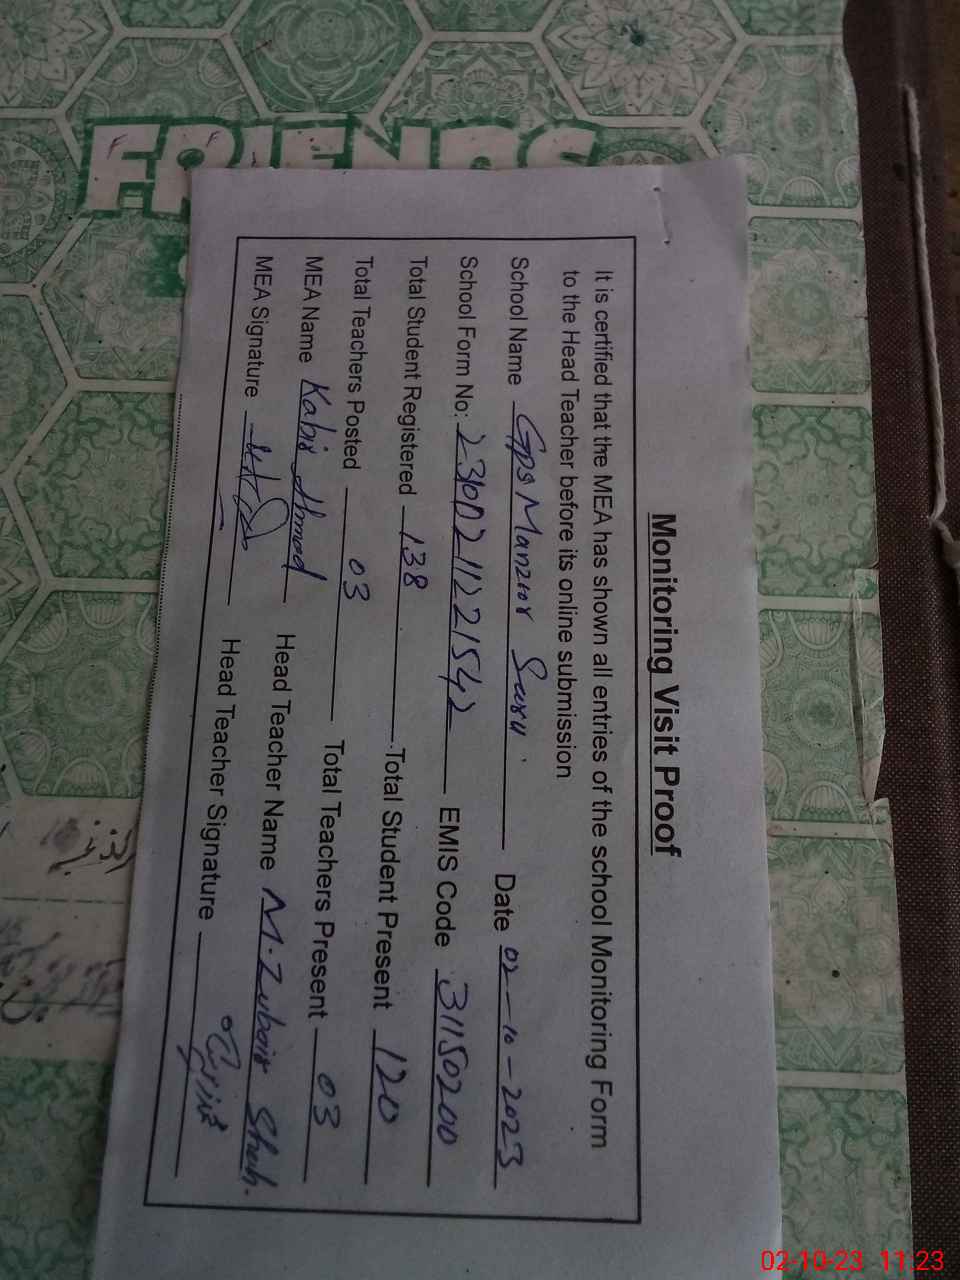 FRIENDS
Monitoring Visit Proof
It is certified that the MEA has shown all entries of the school Monitoring Form
to the Head Teacher before its online submission
School Name GPS Manzoor Date 02-10-2023
School Form No: 23100211221542 EMIS Code 31150200
Total Student Registered 138 Total Student Present 120
Total Teachers Posted 03 Total Teachers Present 03
MEA Name Kabir Ahmad Head Teacher Name M. Zubair Shah.
MEA Signature Head Teacher Signature
02-10-23 11:23